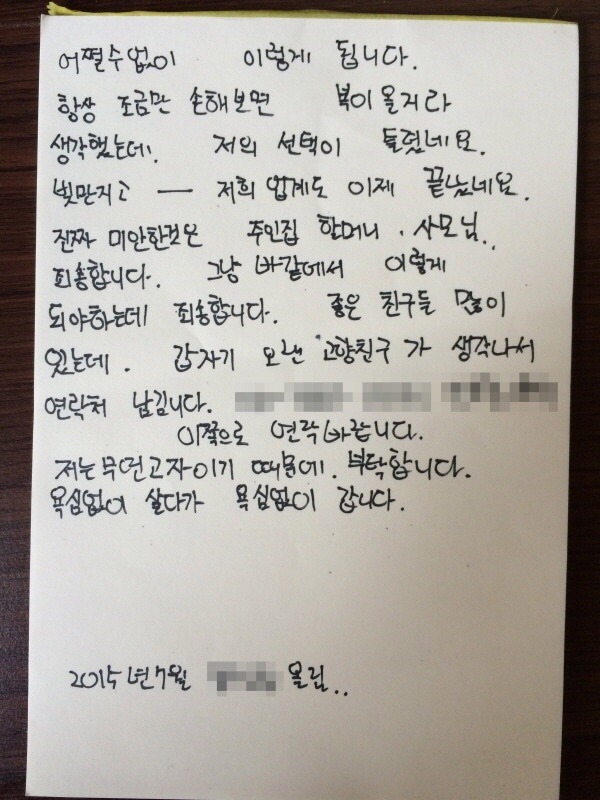 어쩔수없이 이렇게 됩니다.
항상 조금만 손해보면 복이올거라
생각했는데. 저의 선택이 틀렸네요.
빚만지고 — 저희 업계도 이제 끝났네요.
진짜 미안한것은 주인집 할머니, 사모님..
죄송합니다. 그냥 바깥에서 이렇게
되야하는데 죄송합니다. 좋은 친구들 많이
있는데. 갑자기 오랜 고향친구가 생각나서
연락처 남깁니다.
이쪽으로 연락바랍니다.
저는무연고자이기 때문에. 부탁합니다.
욕심없이 살다가 욕심없이 갑니다.
2015년7월 올림..